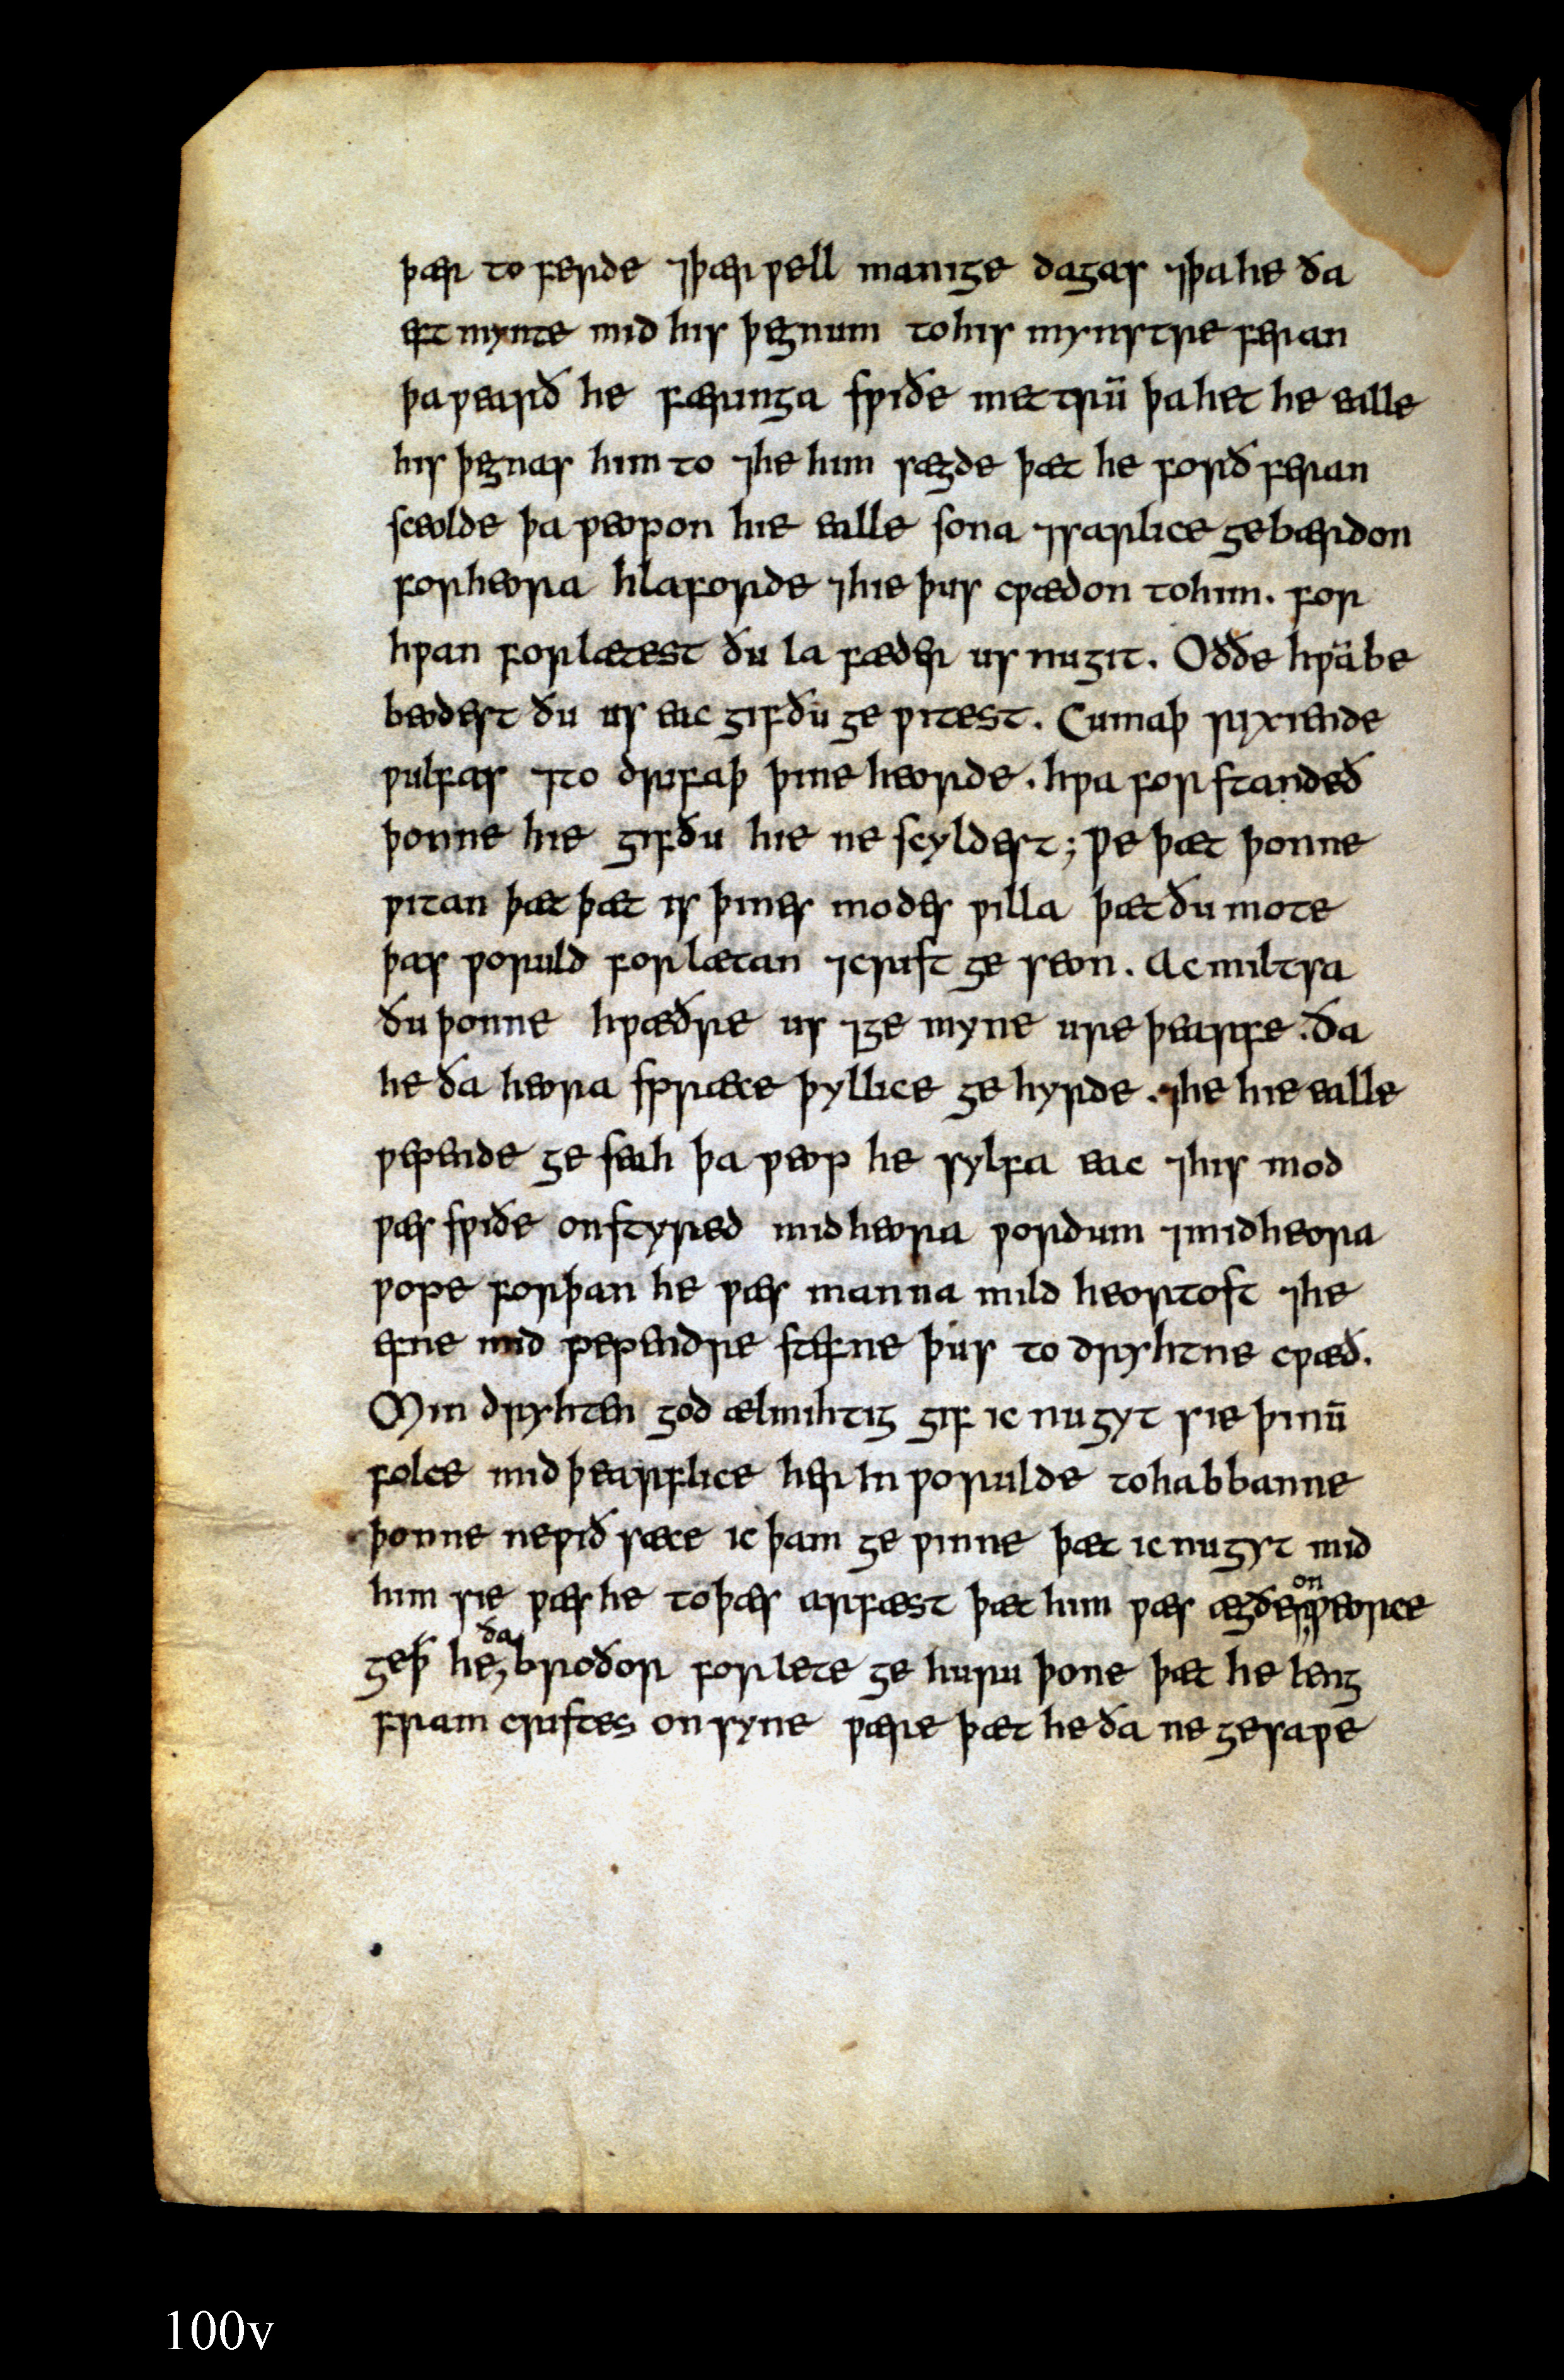 þær to ferde ⁊þær ƿell manige dagas ⁊þa he ða
eft mynte mid his þegnum tohis mynstre feran
þaƿearð he færunga sƿiðe mettrū þahet he ealle
his þegnas him to ⁊he him sægde þæt he forð feran
sceolde þa ƿeopon hie ealle sona ⁊sarlice gebærdon
forheora hlaforde ⁊hie þus cƿædon tohim. for
hƿan forlætest ðu la fæder us nugit. Oððe hƿā be
beodest ðu us eac gifðu ge ƿitest. Cumaþ risiende
ƿulfas ⁊to drifaþ þine heorde. hƿa forstandeð
þonne hie gifðu hie ne scyldest; Ƿe þæt þonne
ƿitan þæt þæt is þines modes ƿilla þætðu mote
þas ƿoruld forlætan ⁊crist ge seon. Ac miltsa
ðu þonne hƿæðre us ⁊ge myne ure þearfe. ða
he ða heora spræce þyllice ge hyrde. ⁊he hie ealle
ƿepende ge seah þa ƿeop he sylfa eac ⁊his mod
ƿæs sƿiðe onstyred midheora ƿordum ⁊midheora
ƿope forþan he ƿæs manna mild heortost ⁊he
efne mid ƿependre stefne þus to dryhtne cƿæð.
Min dryhten god ælmihtig gif ic nu gyt sie þinū
folce nid þearflice her in ƿorulde tohabbanne
þonne neƿið sæce ic þam ge ƿinne þæt ic nugyt mid
him sie ƿæs he toþæs arfæst þæt him ƿæs ægðer on ƿeorce
geꝥ he ða broðor forlete ge huru þone þæt he leng
fram cristes onsyne ƿære þæt he ða ne gesaƿe
100v